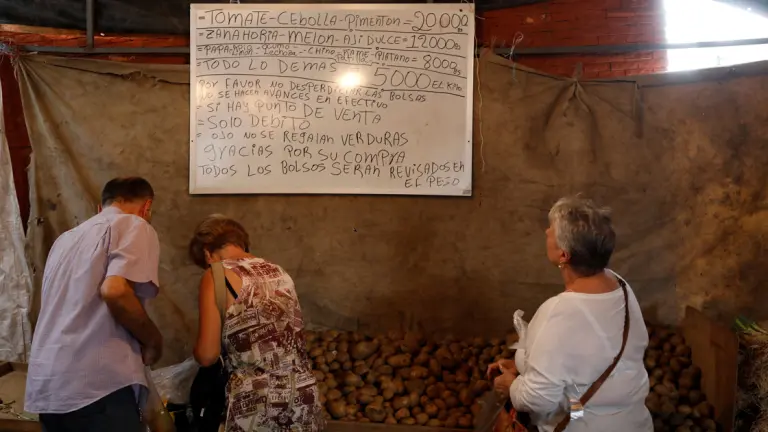 =TOMATE-CEBOLLA-PIMENTON=20000BS
=ZANAHORIA-MELON-AJI DULCE=12000BS
=PAPA-
LECHOSA-CHINO-
PLATANO=8000BS
=TODO LO DEMAS
5000 EL KILO
POR FAVOR NO DESPERDICIAR LAS BOLSAS
NO SE HACEN AVANCES EN EFECTIVO
=SI HAY PUNTO DE VENTA
=SOLO DEBITO
=OJO NO SE REGALAN VERDURAS
GRACIAS POR SU COMPRA
TODOS LOS BOLSOS SERAN REVISADOS EN
EL PESO